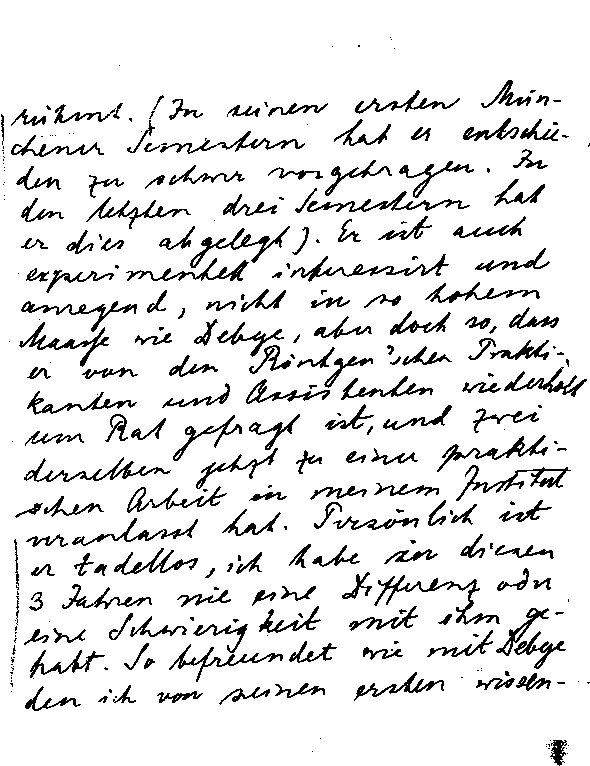 rühmt. (In seinen ersten Mün-
chener Semestern hat er entschie-
den zu schwer vorgetragen. In
den letzten drei Semestern hat
er dies abgelegt). Er ist auch
experimentell interessirt und
anregend, nicht in so hohem
Maasse wie Debye, aber doch so, dass
er von den Röntgen'schen Prakti-
kanten und Assistenten wiederholt
um Rat gefragt ist, und zwei
derselben jetzt zu einer prakti-
schen Arbeit in meinem Institut
veranlasst hat. Persönlich ist
er tadellos, ich habe in diesen
3 Jahren nie eine Differenz oder
eine Schwierigkeit mit ihm ge-
habt. So befreundet wie mit Debye
den ich von seinen ersten wissen-